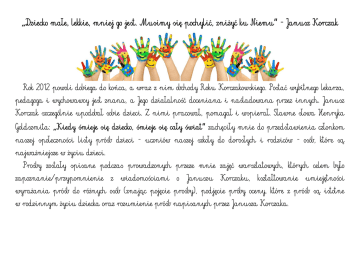 „Dziecko małe, lekkie, mniej go jest. Musimy się pochylić, zniżyć ku Niemu" - Janusz Korczak
Rok 2012 powoli dobiega do końca, a wraz z nim obchody Roku Korczakowskiego. Postać wybitnego lekarza,
pedagoga i wychowawcy jest znana, a Jego działalność doceniana i naśladowana przez innych. Janusz
Korczak szczególnie upodobał sobie dzieci. Z nimi pracował, pomagał i wspierał. Sławne słowa Henryka
Goldszmita: „Kiedy śmieje się dziecko, śmieje się cały świat" zachęciły mnie do przedstawienia członkom
naszej społeczności listy próśb dzieci - uczniów naszej szkoły do dorosłych i rodziców - osób, które są
najważniejsze w życiu dzieci.
Prośby zostały opisane podczas prowadzonych przeze mnie zajęć warsztatowych, których celem było
zapoznanie/przypomnienie z wiadomościami o Januszu Korczaku, kształtowanie umiejętności
wyrażania próśb do różnych osób (znając pojęcie prośby), podjęcie próby oceny, które z próśb są istotne
w rodzinnym życiu dziecka oraz rozumienie próśb napisanych przez Janusza Korczaka.